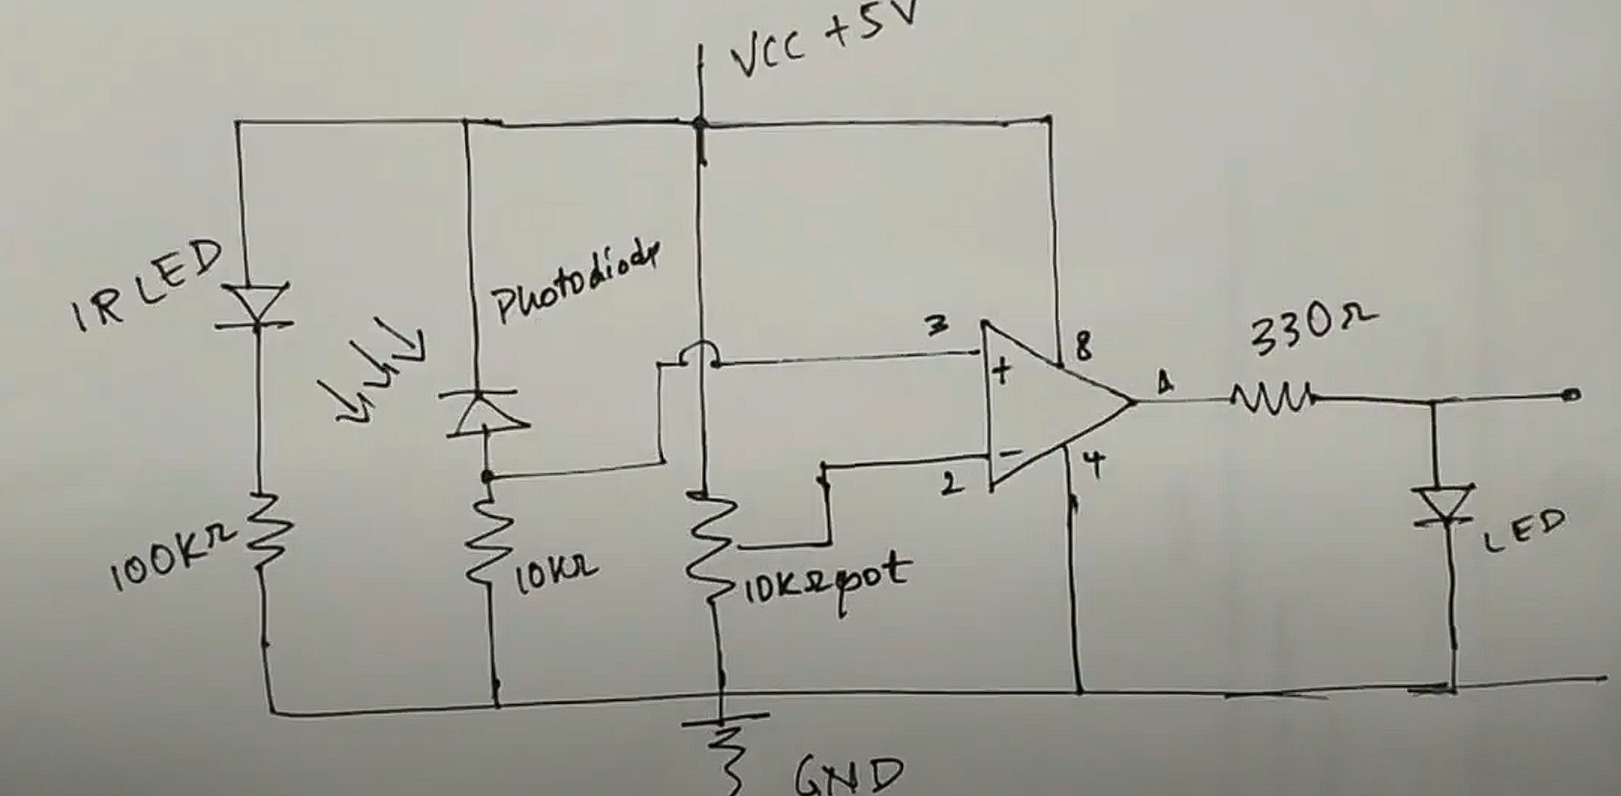 VCC +5V
IR LED
Photodiode
3
+
8
330Ω
2
-
4
LED
100KΩ
10KΩ
10KΩ pot
GND